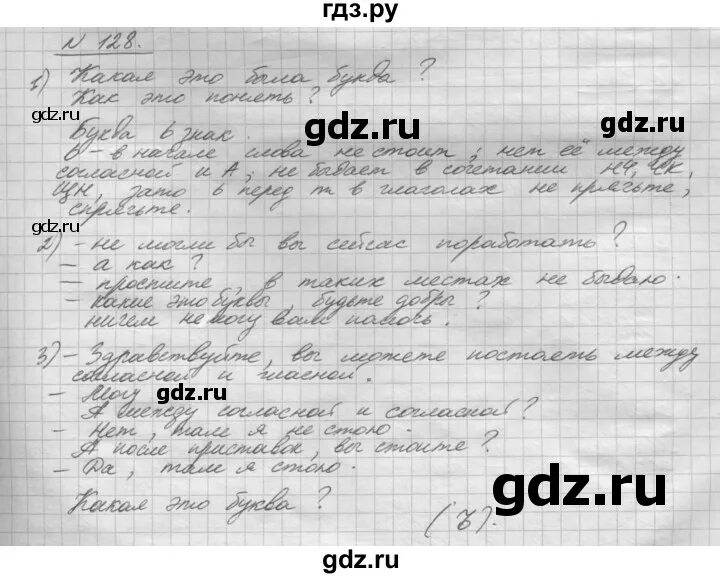 гдз.ру
N 128.
1) Какая это была буква ?
Как это понять ?
gdz.ru
gdz.ru
Буква ь знак.
gdz.ru
ь – в начале слова не стоит ; нет её между
согласной и А ; не бывает в сочетании НЧ, ЧК,
ЩН, зато ь перед т в глаголах не прячьте,
спрячьте.
gdz.ru
2) – не могли бы вы сейчас поработать ?
gdz.ru
– а как ?
– простите, в таких местах не бываю.
– какие это буквы, будьте добры ?
ничем не могу вам помочь.
gdz.ru
3) – Здравствуйте, вы можете постоять между
согласной и гласной.
– Могу
gdz.ru
А между согласной и согласной ?
– Нет, там я не стою.
А после приставок, вы стоите ?
gdz.ru
– Да, там я стою.
gdz.ru
Какая это буква ?
(ъ).
gdz.ru
gdz.ru